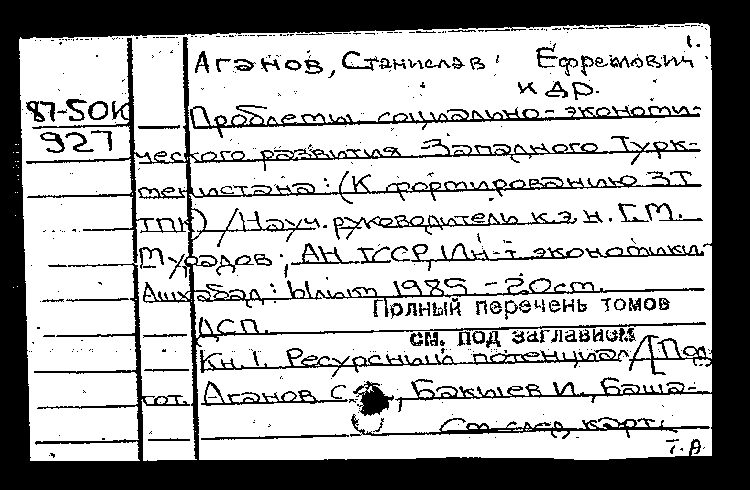 1.
Аганов, Станислав Ефремович
и др.
87-50К
927
Проблемы социально-экономи-
ческого развития Западного Турк-
менистана: (К формированию ЗТ
ТПК) / Науч. руководитель к.э.н. Г.М.
Мурадов; АН ТССР, Ин-т экономики.-
Ашхабад: Ылым 1985 - 20см.
Полный перечень томов
ДСП.
см. под заглавием
Кн. 1. Ресурсный потенциал / [Под-
гот. Аганов С. , Бакиев И., Баша-
См. след. карт.
Т.А